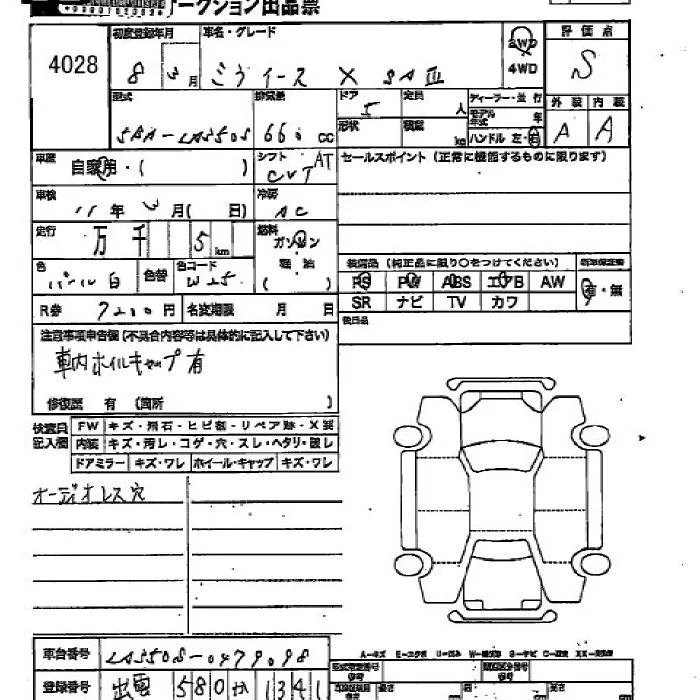 オークション出品票
4028
初度登録年月 8 年 3 月
車名・グレード ミライース X SAⅢ
2WD
4WD
評価点 S
型式 5BA-LA350S
排気量 660 CC
ドア 5
定員 人
形状
積載 kg
ディーラー・並行
モデル年式 年
ハンドル 左・右
外装 A
内装 A
車歴 自家用・( )
シフト AT CVT
セールスポイント(正常に機能するものに限ります)
車検 11 年 3 月( 日)
冷房 AC
走行 万 千 5 km
燃料 ガソリン
軽油
( )
色 パール白
色替
色コード W25
装備品(純正品に限り○をつけてください)
新車保証書
PS PW ABS エアB AW
有・無
SR ナビ TV カワ
R券 7200 円
名変期限 月 日
後日品
注意事項申告欄(不具合内容等は具体的に記入して下さい)
車内ホイルキャップ有
修復歴 有 (箇所 )
検査員記入欄
FW キズ・飛石・ヒビ割・リペア跡・X要
内装 キズ・汚レ・コゲ・穴・スレ・ヘタリ・破レ
ドアミラー キズ・ワレ ホイール・キャップ キズ・ワレ
オーディオレス穴
車台番号 LA350S-0479098
登録番号 580 か 1341